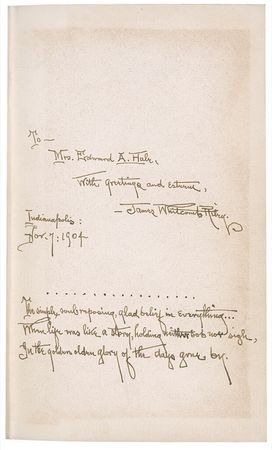 To—
Mrs. Edward A. Hale,
With greetings and esteem,
—James Whitcomb Riley.
Indianapolis:
Nov. 7: 1904
The simple, soul-reposing, glad belief in everything...
When life was like a story, holding neither sob nor sigh,
In the golden olden glory of the days gone by.